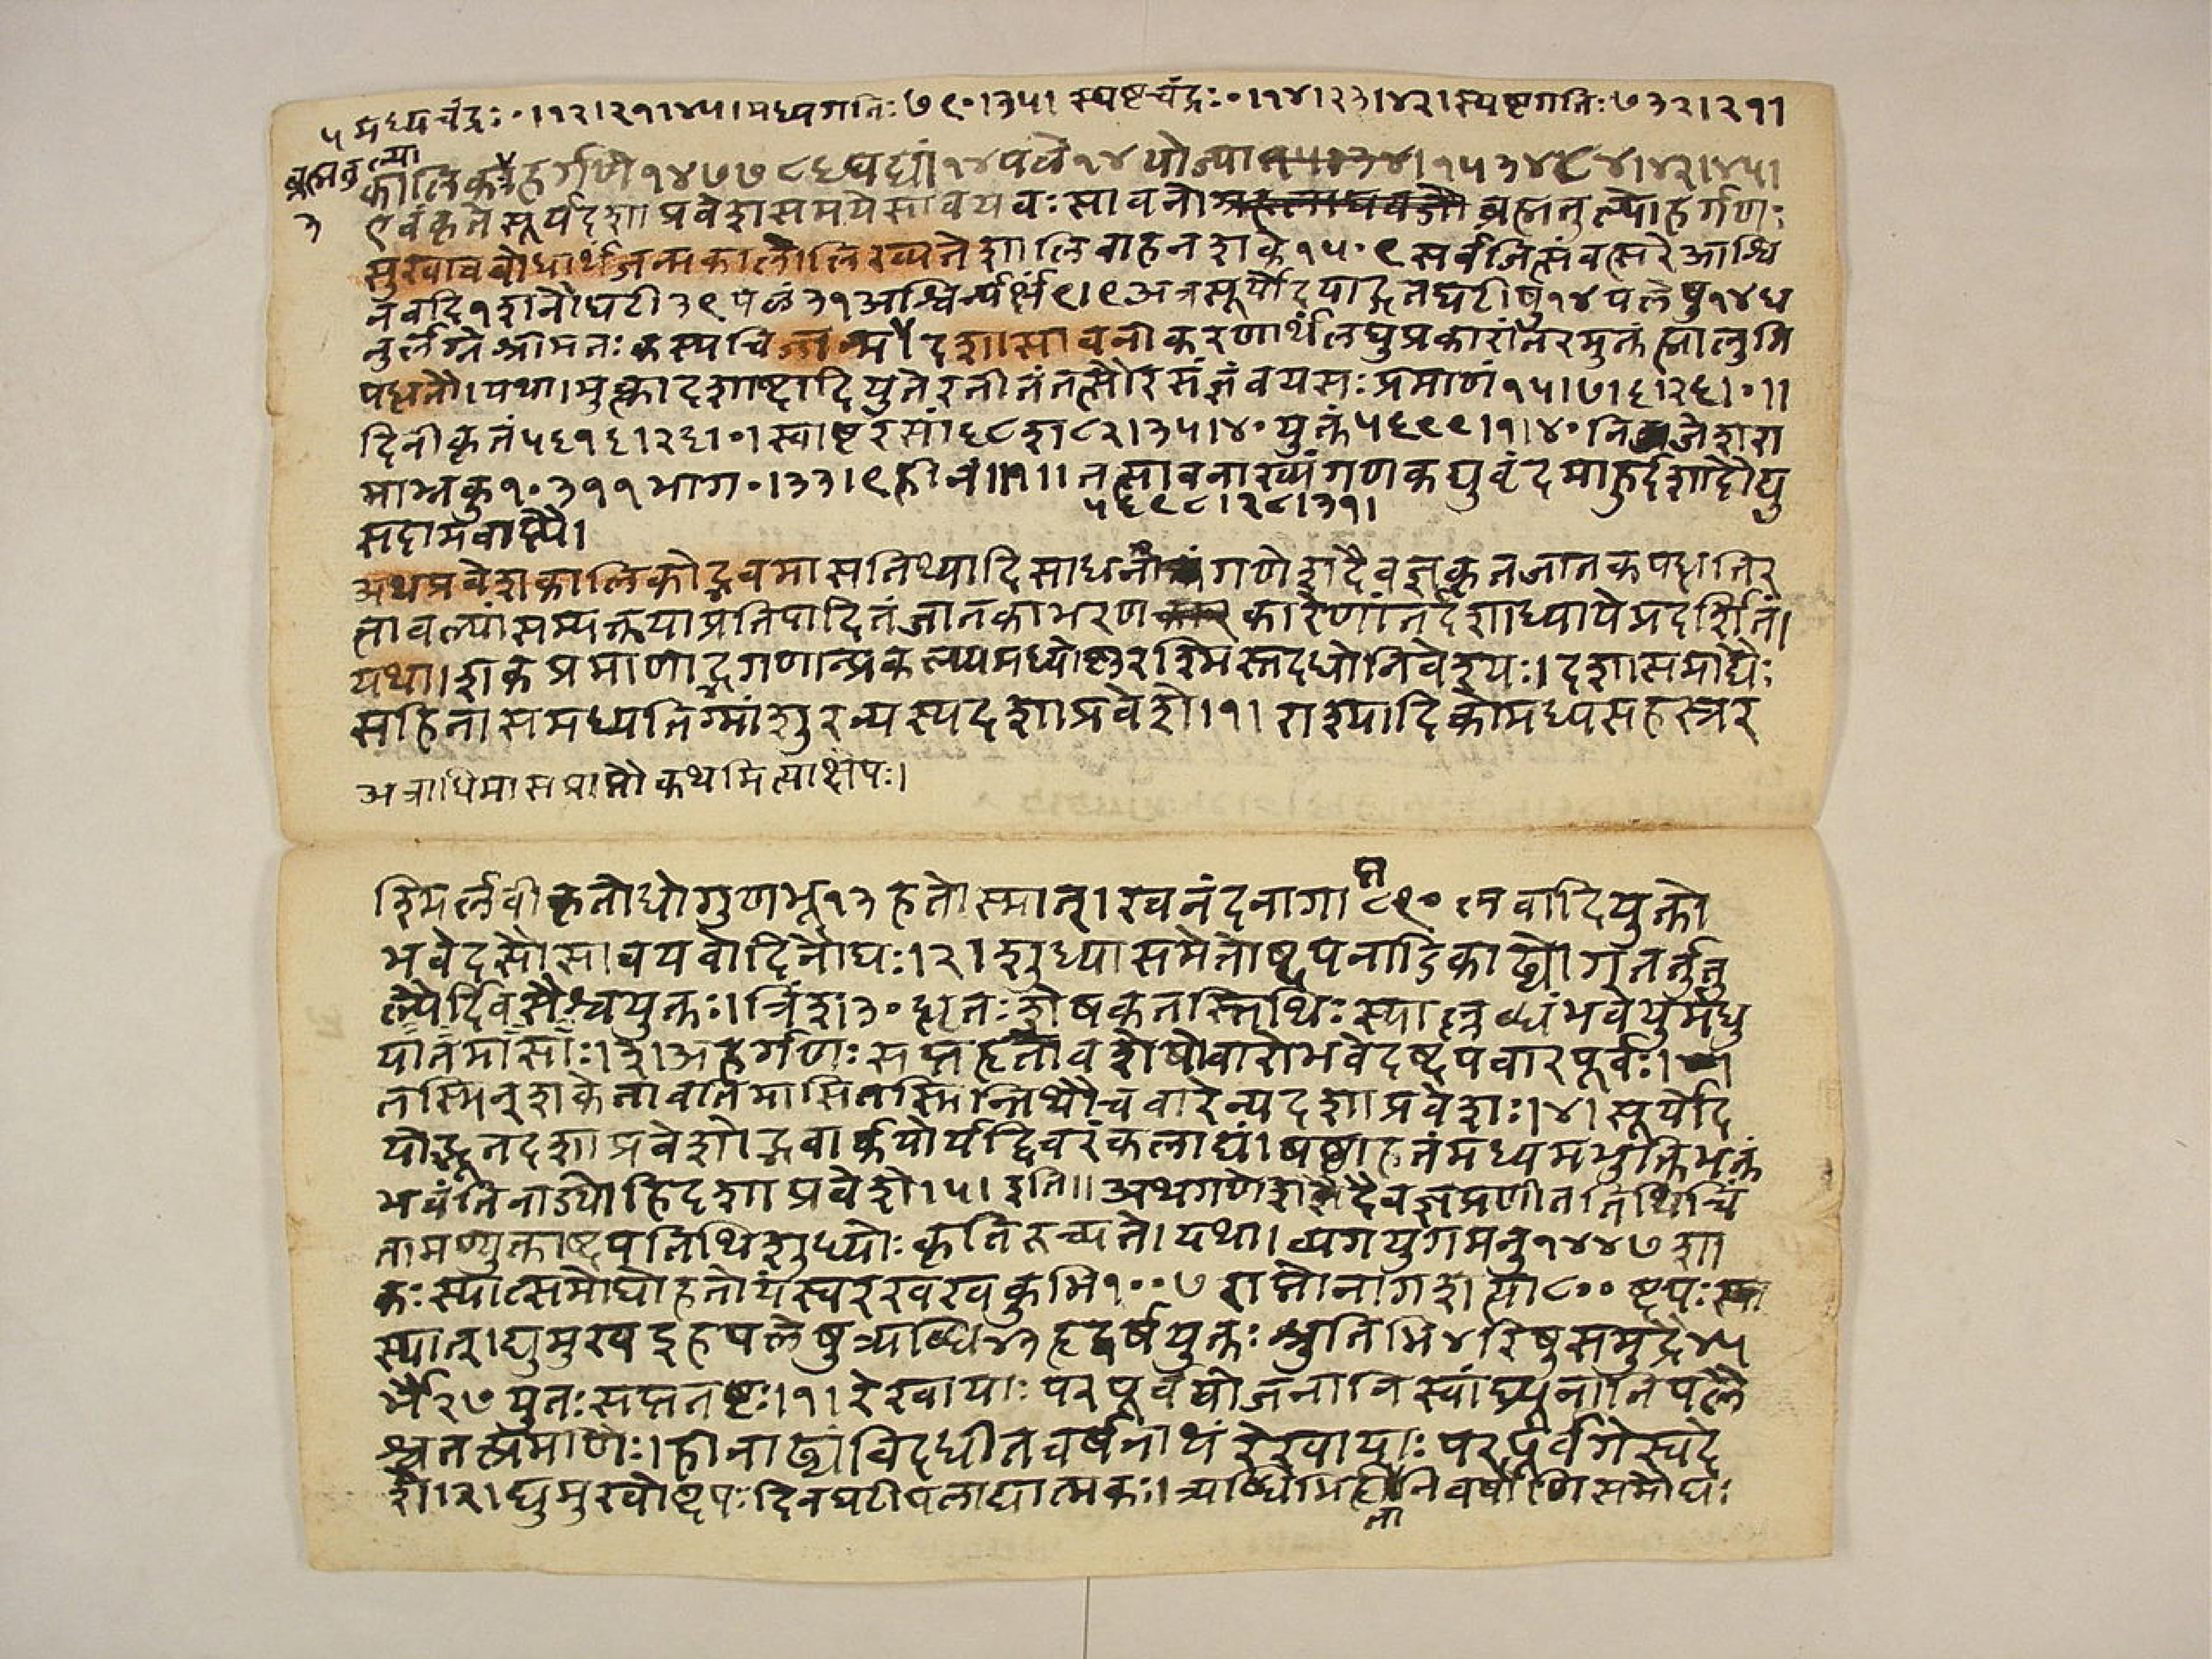 ५ मध्यचंद्रः ०।१२।२१।४५। मध्यगतिः ७९०।३५। स्पष्टचंद्रः ०।१४।२३।४२। स्पष्टगतिः ७३२।२११
ब्रह्मतुल्या
कालिकेहर्गणे १४७७८६ घट्यां १४ पले १४ योज्या १५३४८४।४२।४५।
३
एवंकृते सूर्यदशाप्रवेशसमये सावयवः सावनो ब्रह्मतुल्योहर्गणः
सुखावबोधार्थं जन्मकालो लिख्यते शालिवाहनशके १५०९ सर्वजित्संवत्सरे आश्वि
न वदि १ शनौ घटी ३९ पळं ३१ अश्विन्यर्क्षं ९।९ अत्र सूर्योदयाद्गतघटीषु १४ पलेषु १४ ध
नुर्लग्ने श्रीमतः कस्यचिज्जन्म दशासावनीकरणार्थं लघुप्रकारांतरमुक्तं
पद्धतौ। यथा। भुक्त्वादशाब्दादियुतेरतीतं तत्सौरसंज्ञं वयसः प्रमाणं १५।७।६।२६।०।।
दिनीकृतं ५६१६।२६।०। स्वाष्ट रसां ६८ श ८२।३५।४० युक्तं ५६९९।१।४० जेशरा
माभ्रकु १०३११ भाग ०।३३।९ हीनं।।१।। तत्सावनाख्यं गणकध्रुवंदमाहुर्दशादौद्यु
५६९८।२८।३१।
सदामवाप्त्यै।
अथ प्रवेशकालिकोद्भवमासतिथ्यादिसाधनं गणेशदैवज्ञकृतजातकपद्धतिर
त्नावल्यां सम्यक्तया प्रतिपादितं जातकाभरणकारेणांतर्दशाध्याये प्रदर्शितं।
यथा। शकप्रमाणाद्द्युगणान्प्रकल्प्य मध्योष्णरश्मिस्तदधो निवेश्यः। दशासमाद्यैः
सहिता समध्यतिग्मांशुरन्यस्य दशाप्रवेशे।१। राश्यादिको मध्यसहस्त्रर
अत्राधिमासप्राप्तौ कथमित्याक्षेपः।
श्मिर्लवीकृतोधो गुणभू १३ हतोस्मात्। खनंदनागा ८९० प्त लवादियुक्तो
भवेदसौ सावयवो दिनौघः।२। शुध्यासमेतोब्दपनाडिकाढ्यो गतर्तुतु
ल्यैर्दिवसैश्च युक्तः। त्रिंश ३० द्धृतः शेषकतस्तिथिः स्याल्लब्धं भवेयुर्मधु
यातमासाः।३। अहर्गणः सप्तहृतोवशेषो वारो भवेदब्दपवारपूर्वः।
तस्मिन् शके तावति मासि तस्मिन्तिथौ च वारेन्यदशाप्रवेशः।४। सूर्योद
योद्भूतदशाप्रवेशोद्भवार्कयोर्यद्विवरं कलाद्यं। षष्ठ्याहतं मध्यमभुक्तिभक्तं
भवंति नाड्यो हि दशाप्रवेशे।५। इति।। अथ गणेशदैवज्ञप्रणीततिथिचिं
तामण्युक्ताब्दपतिथिशुध्योः कृतिरुच्यते। यथा। व्यगयुगमनु १४४७ शा
कः स्यात्समौघो हतोयं स्वरखखकुभि १००७ राप्तो नागशत्या ८०० ब्दपः
स्यात्। द्युमुख इह पलेषु त्र्यब्धि ४३ हृद्वर्षयुक्तः श्रुतिभि ४ रिषुसमुद्रै ४५
र्भै २७ युतः सप्ततष्टः।१। रेखायाः परपूर्वयोजनानि स्वांघ्र्यूनानि पलै
श्च तत्प्रमाणैः। हीनाढ्यं विदधीत वर्षनाथं रेखायाः परपूर्वगे स्वदे
शे।२। द्युमुखोब्दपः दिनघटीपलाद्यात्मकः। त्र्यब्धिभिर्हीनानि वर्षाणि समौघः